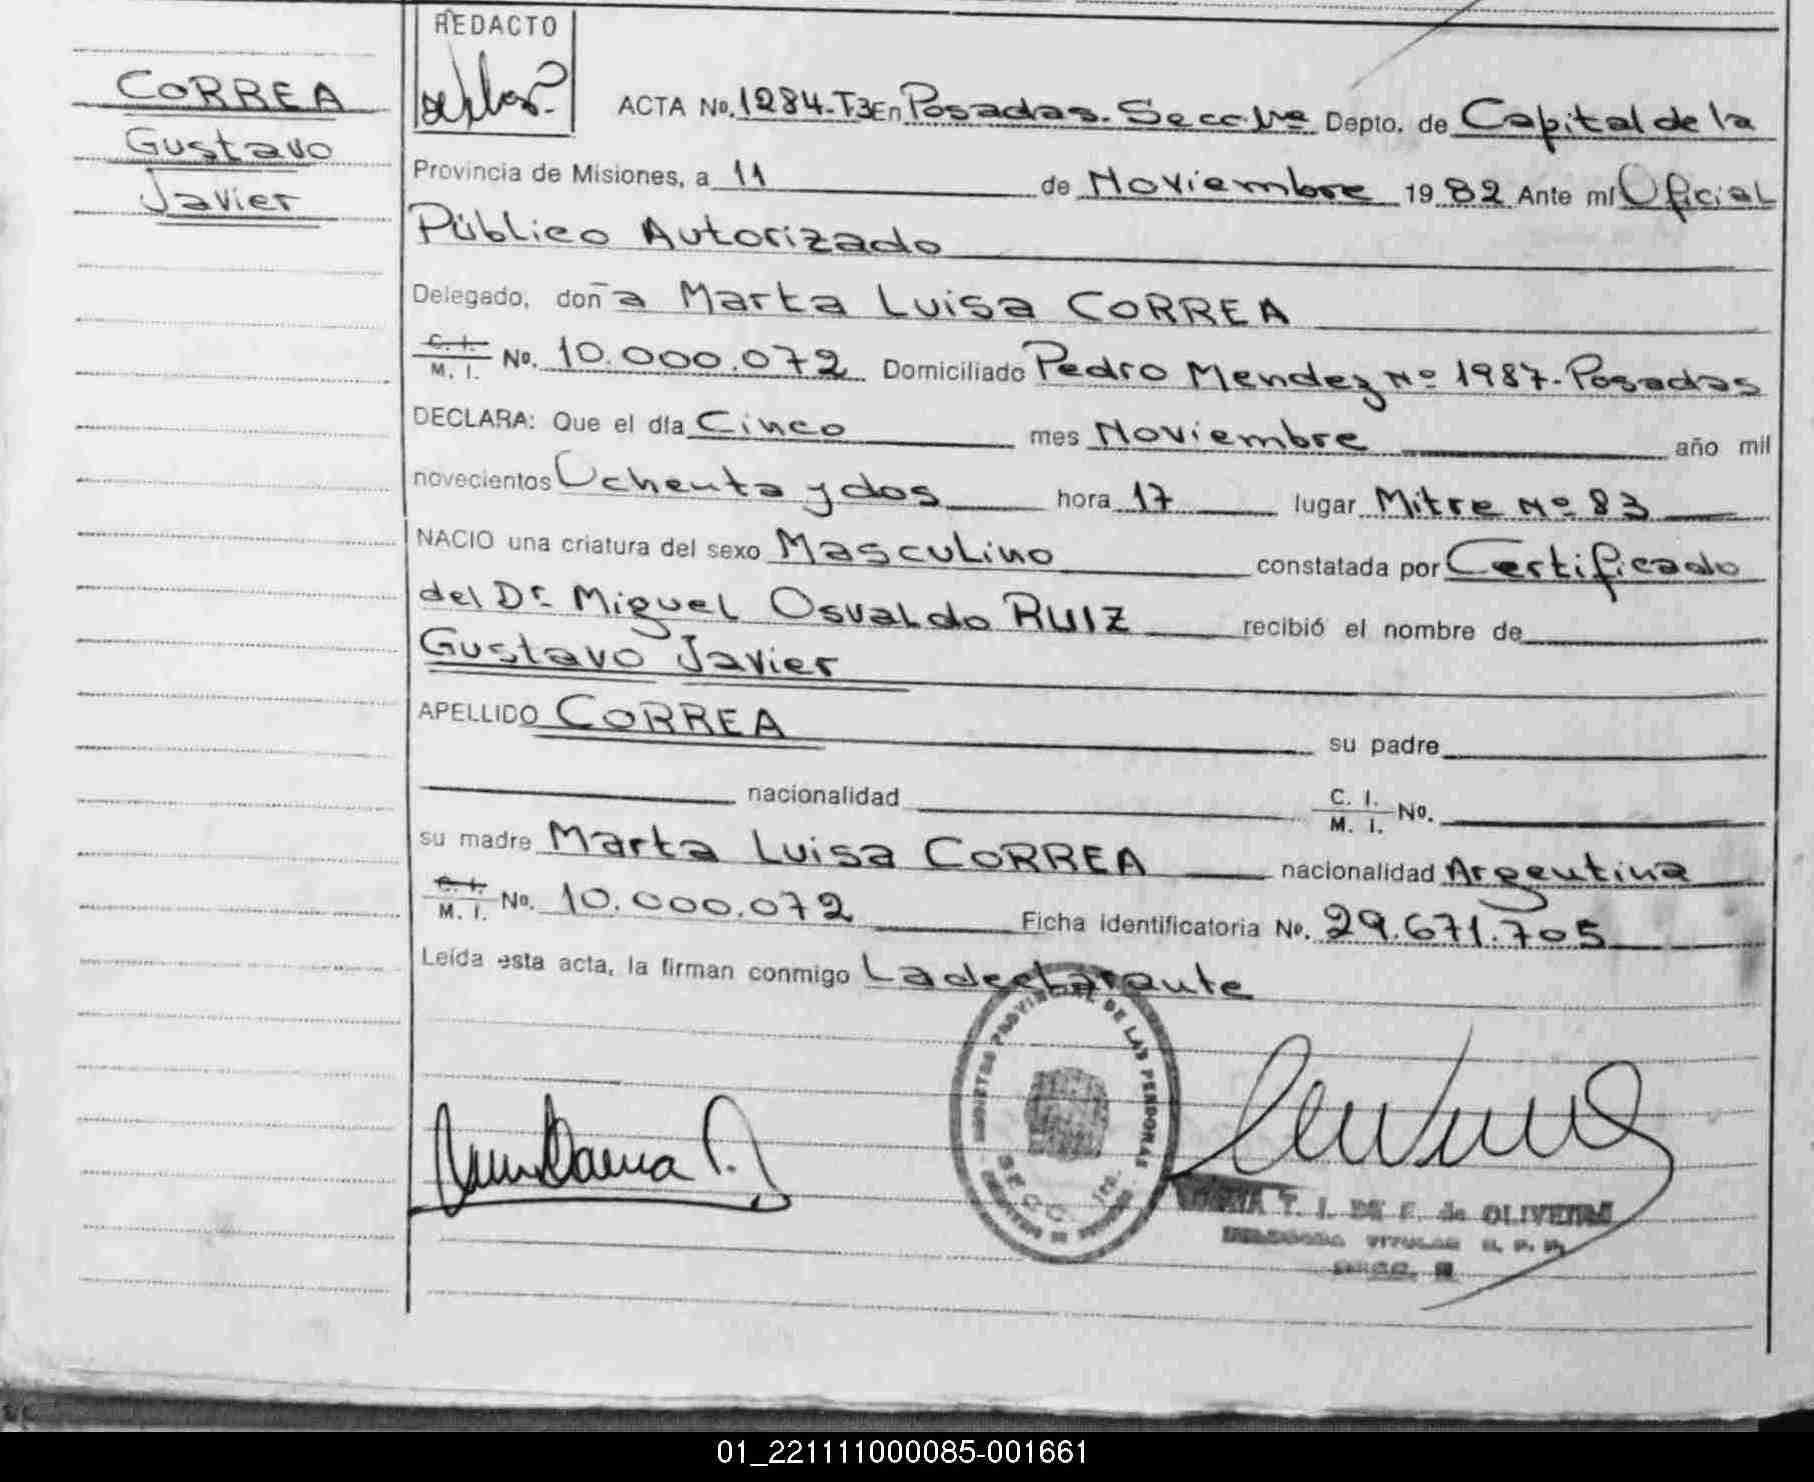 REDACTO
CORREA
Gustavo
Javier
ACTA No. 1284-T3 En Posadas. Secc. 1ra Depto. de Capital de la
Provincia de Misiones, a 11 de Noviembre 1982 Ante mí Oficial
Público Autorizado
Delegado, doña Marta Luisa CORREA
C. I. M. I. No. 10.000.072 Domiciliado Pedro Mendez Nº 1987-Posadas
DECLARA: Que el día Cinco mes Noviembre año mil
novecientos Ochenta y dos hora 17 lugar Mitre Nº 83
NACIO una criatura del sexo Masculino constatada por Certificado
del Dr. Miguel Osvaldo RUIZ recibió el nombre de
Gustavo Javier
APELLIDO CORREA su padre
nacionalidad C. I. M. I. No.
su madre Marta Luisa CORREA nacionalidad Argentina
C. I. M. I. No. 10.000.072 Ficha identificatoria No. 29.671.705
Leída esta acta, la firman conmigo La declarante
PROVINCIAL DE LAS PERSONAS
SECC. 1ra.
T. I. DE F. de OLIVEIRA
TITULAR R. P. P.
01_221111000085-001661